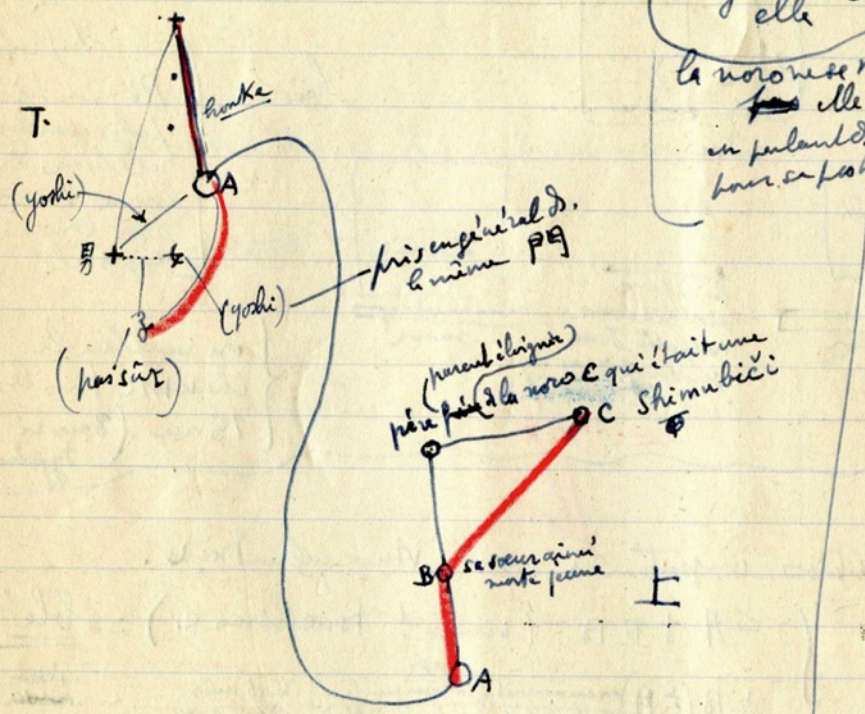 elle
la noro ne se
elle
en parlant d.
pour sa
honke
T.
A
(yoshi)
男
女
(yoshi)
子
(pas sûr)
pris en général ds.
le même 門
(parent éloigné)
père de la noro C qui était une
C Shimubiči
B sa soeur ainée
morte jeune
上
A